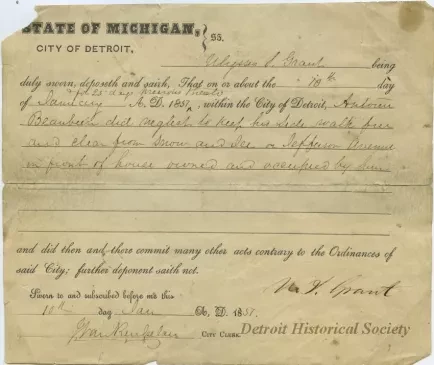 STATE OF MICHIGAN, } SS.
CITY OF DETROIT,
Ulysses S. Grant being
duly sworn, deposeth and saith, That on or about the 10th day
days previous
of January A. D. 1851, within the City of Detroit, Antoine
Beaubien did neglect to keep his side walk free
and clear from snow and Ice on Jefferson Avenue
in front of house owned and occupied by him
and did then and there commit many other acts contrary to the Ordinances of
said City; further deponent saith not.
Sworn to and subscribed before me this
10th day Jan A. D. 1851.
U. S. Grant
CITY CLERK.
Detroit Historical Society